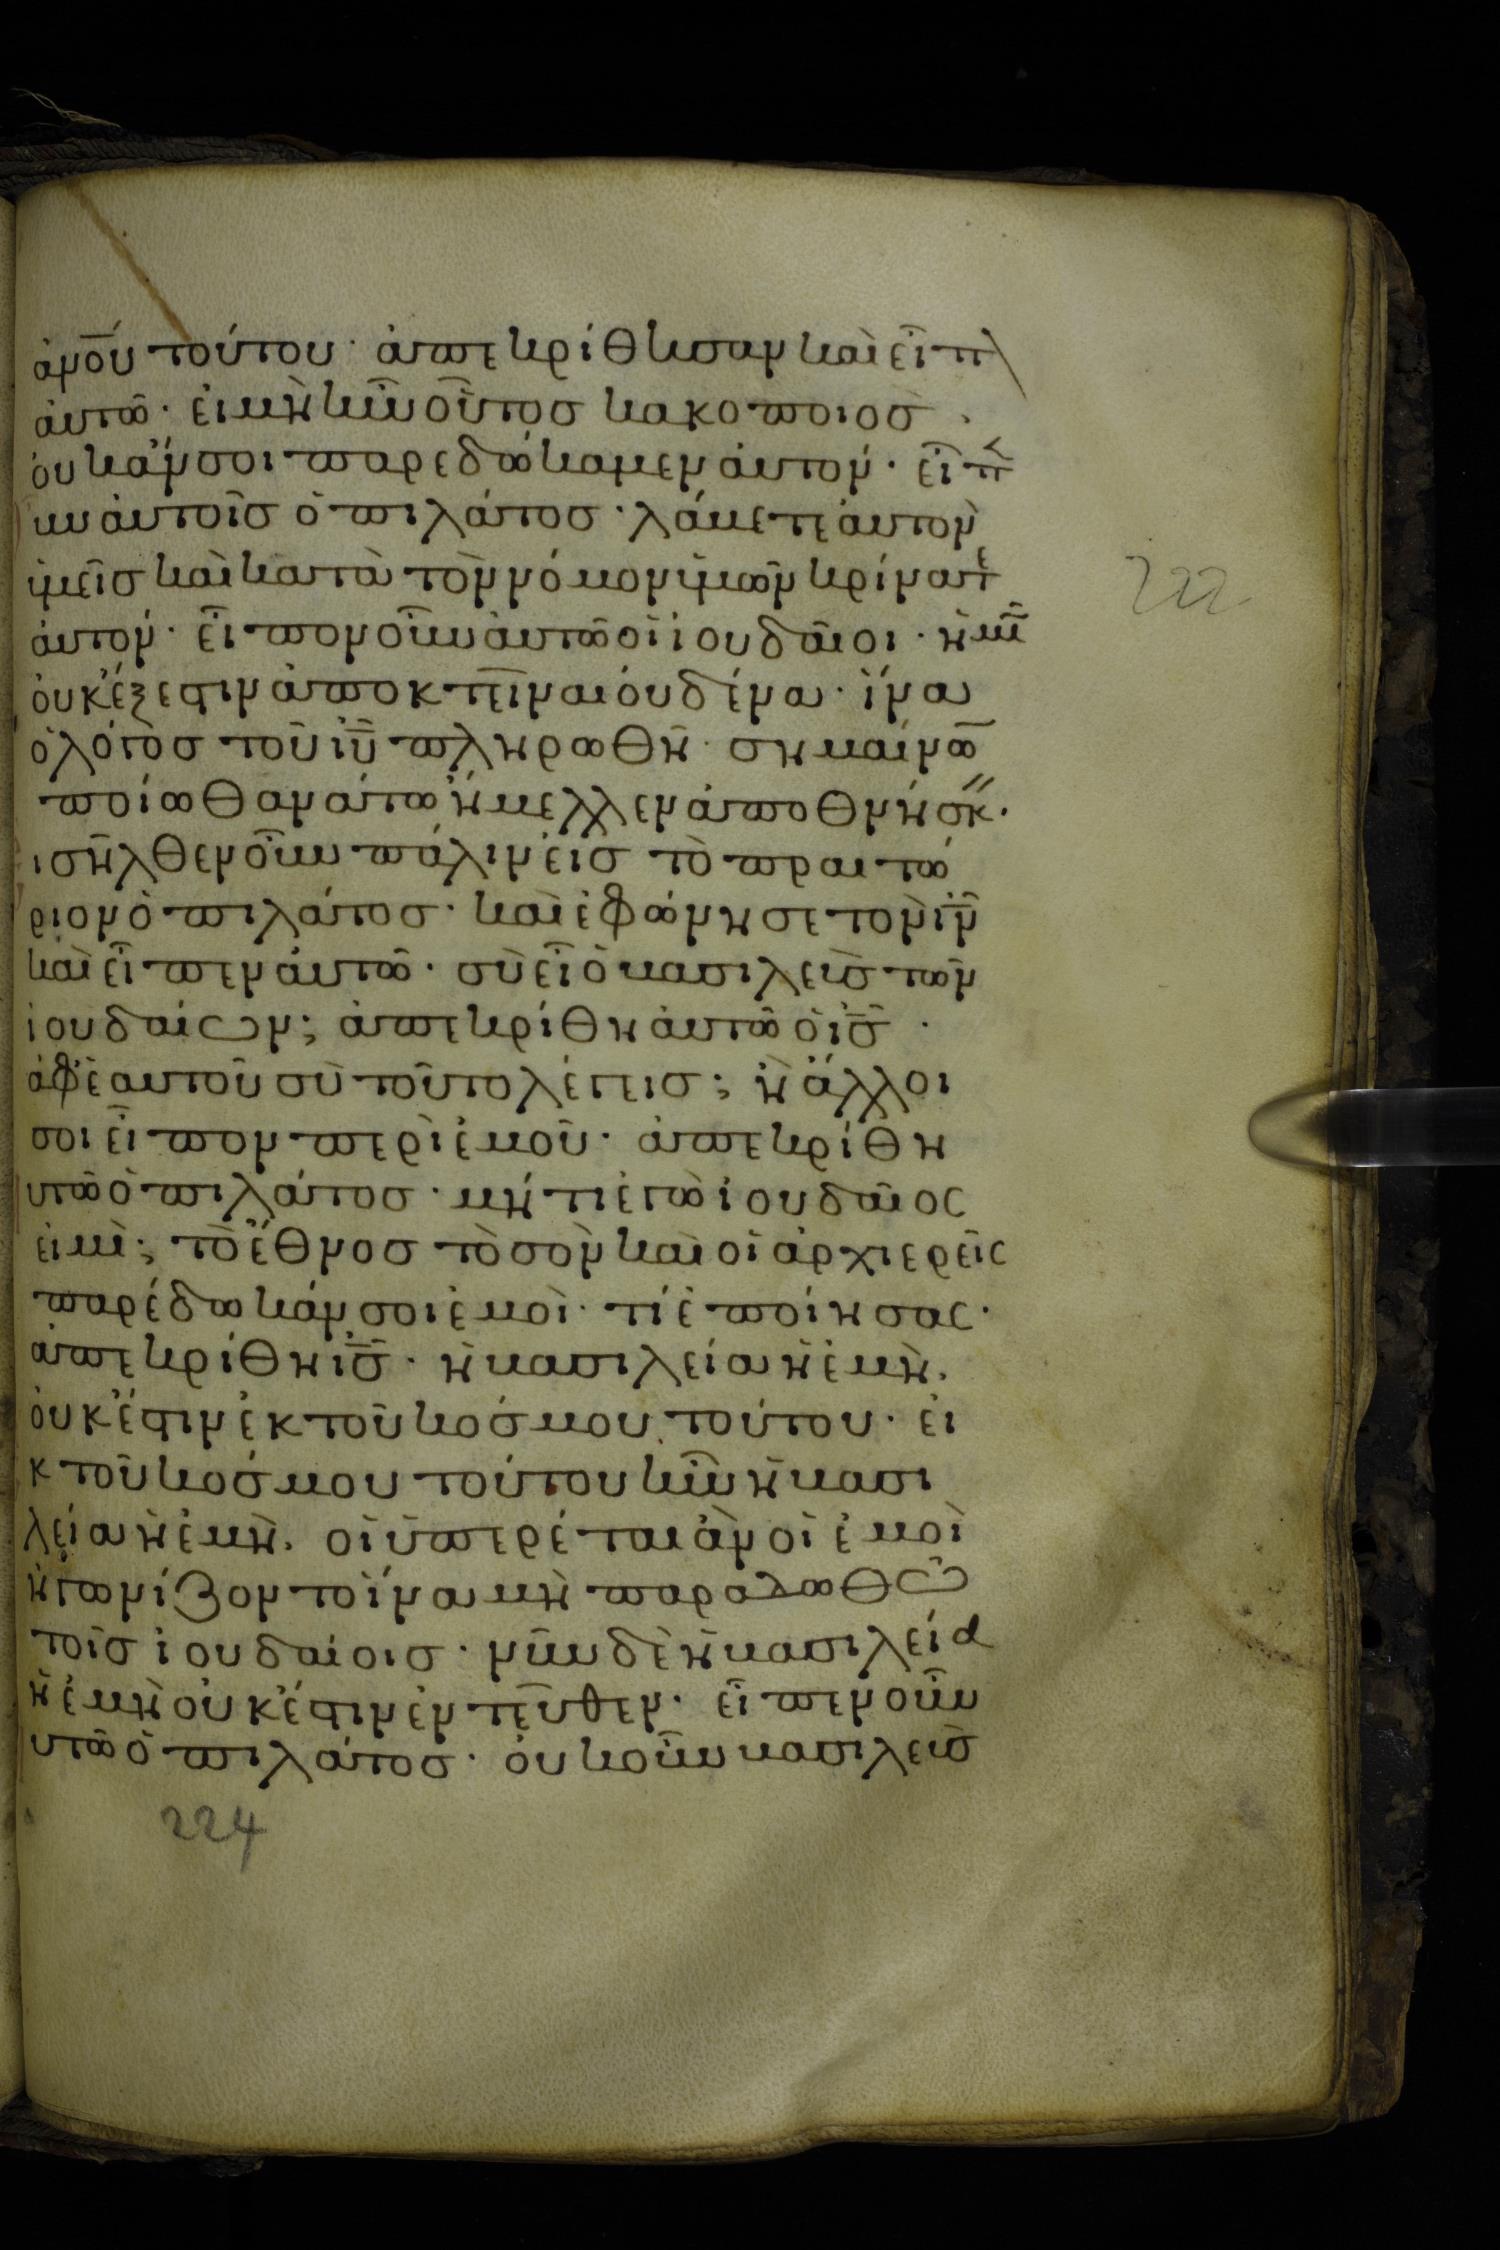 ἀνο̅υ τούτου· ἀπεκρίθησαν καὶ εἶπ
ἀυτῶ· ἐι μὴ ἦν οὗτοσ κακοποιὸσ·
ὀυκ ἄν σοι παρεδώκαμεν ἀυτόν· εἶπ̀
υν ἀυτοῖσ ὁ πιλάτοσ· λάβετε ἀυτὸν
ὑμεῖσ καὶ κατὰ τὸν νόμον ὑμῶν κρίνατε
ἀυτόν· εἶπον οὖν ἀυτῶ οἱ ἰουδαῖοι· ἡμῖ
ὀυκ ἔξεστιν ἀποκτεῖναι ὀυδένα· ἵνα
ὁ λόγοσ τοῦ ἰυ̅ πληρωθῆ· σημαίνω̅
ποίω θανάτω ἤμελλεν ἀποθνήσκ·
ισῆλθεν οὖν πάλιν ἐισ τὸ πραιτώ
ριον ὁ πιλάτοσ· καὶ ἐφώνησε τὸν ἰν̅
καὶ εἶπεν ἀυτῶ· σὺ εἶ ὁ βασιλεὺσ τῶν
ἰουδαίων; ἀπεκρίθη ἀυτῶ ὁ ἰσ̅·
ἀφ' ἑαυτοῦ σὺ τοῦτο λέγεισ; ἢ ἄλλοι
σοι εἶπον περὶ ἐμοῦ· ἀπεκρίθη
υτῶ ὁ πιλάτοσ· μήτι ἐγὼ ἰουδαῖος
ἐιμὶ; τὸ ἔθνοσ τὸ σὸν καὶ οἱ ἀρχιερεῖς
παρέδωκάν σοι ἐμοὶ· τί ἐποίησας·
ἀπεκρίθη ἰσ̅· ἡ βασιλεία ἡ ἐμὴ,
ὀυκ ἔστιν ἐκ τοῦ κόσμου τούτου· ἐι
κ τοῦ κόσμου τούτου ἦν ἡ βασι
λεία ἡ ἐμὴ, οἱ ὑπερέται ἂν οἱ ἐμοὶ
ἠγωνίζοντο ἵνα μὴ παραδωθῶ
τοῖσ ἰουδαίοισ· νῦν δὲ ἡ βασιλεία
ἡ ἐμὴ οὐκ ἔστιν ἐντεῦθεν· εἶπεν οὖν
υτῶ ὁ πιλάτοσ· ὀυκοῦν βασιλεὺσ
222
224